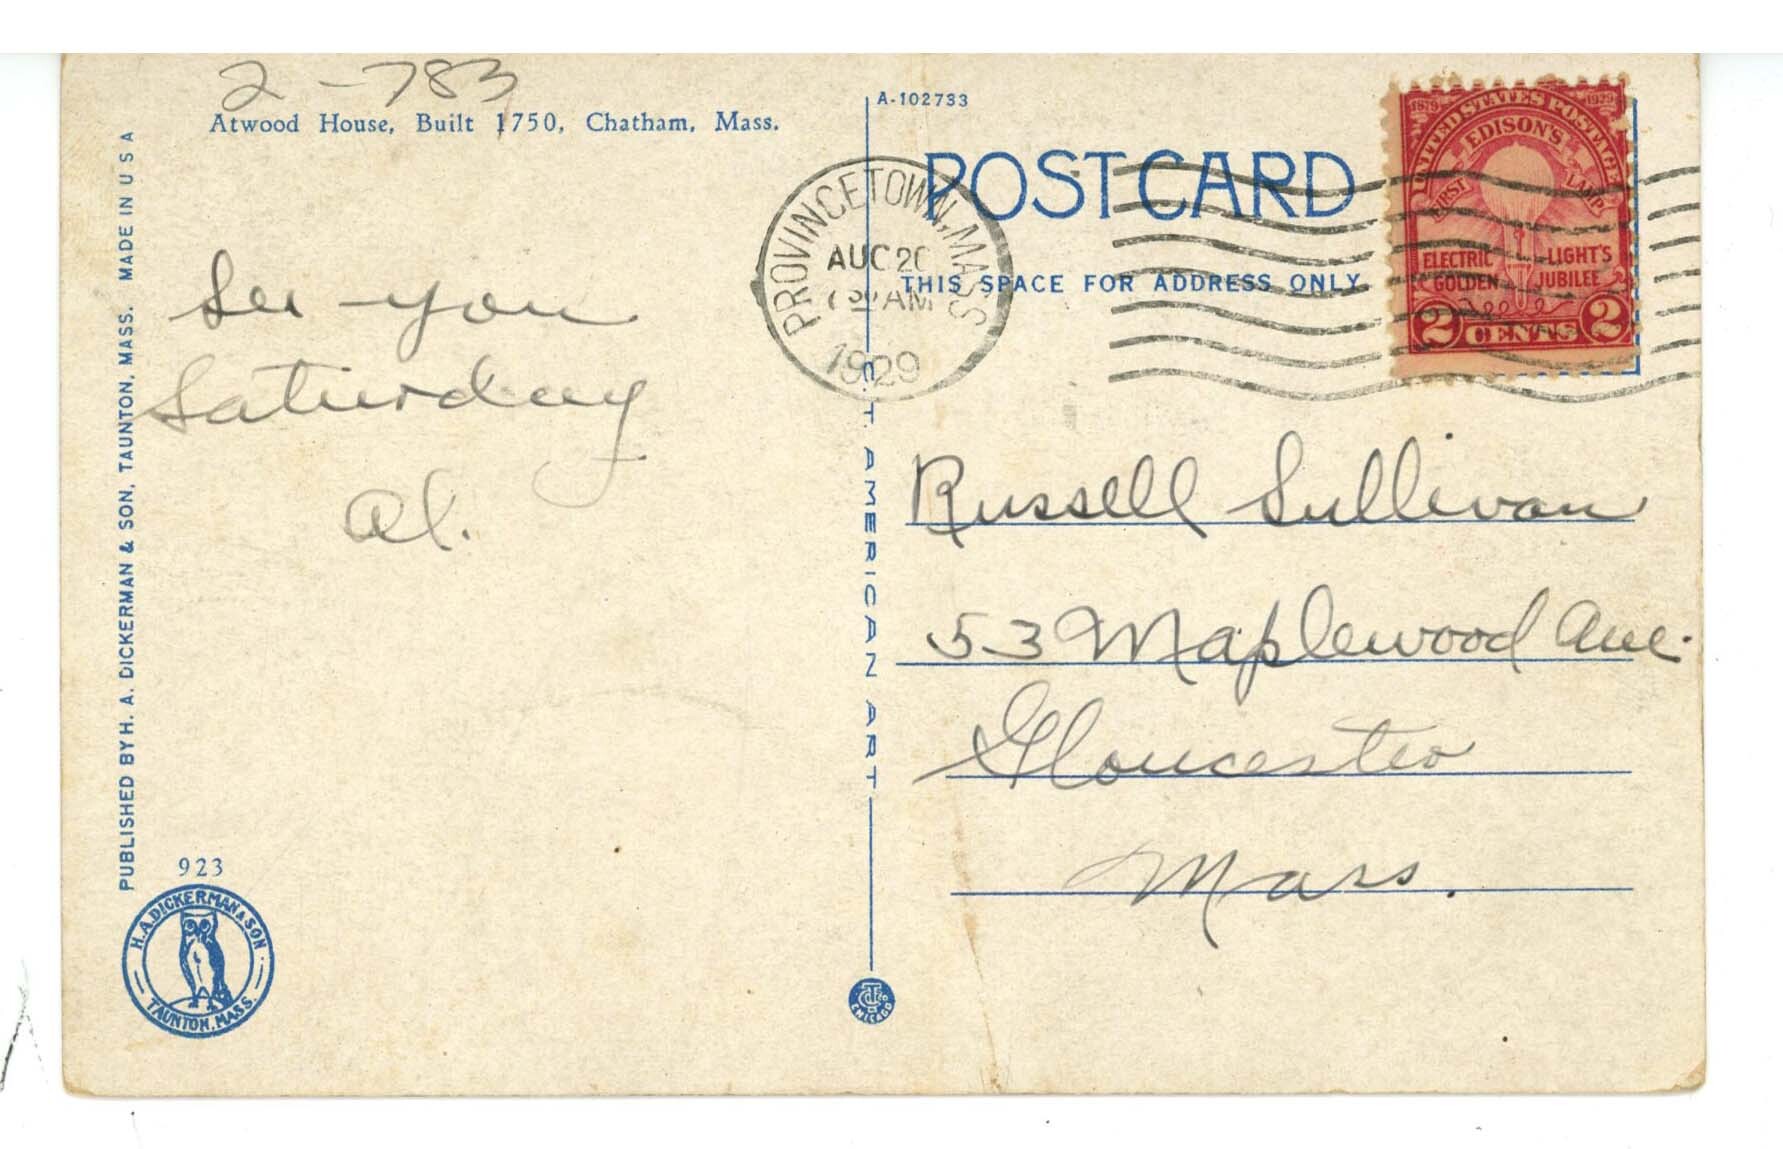 2-783
Atwood House, Built 1750, Chatham, Mass.
A-102733
POST CARD
THIS SPACE FOR ADDRESS ONLY.
PROVINCETOWN, MASS
AUC 20
AM
1929
1879 1929
UNITED STATES POSTAGE
EDISON'S
FIRST LAMP
ELECTRIC LIGHT'S
GOLDEN JUBILEE
2 CENTS 2
See you
Saturday
Al.
Russell Sullivan
53 Maplewood Ave.
Gloucester
Mass.
PUBLISHED BY H. A. DICKERMAN & SON, TAUNTON, MASS. MADE IN U S A
C. T. AMERICAN ART
923
H. A. DICKERMAN & SON
TAUNTON, MASS.
CHICAGO